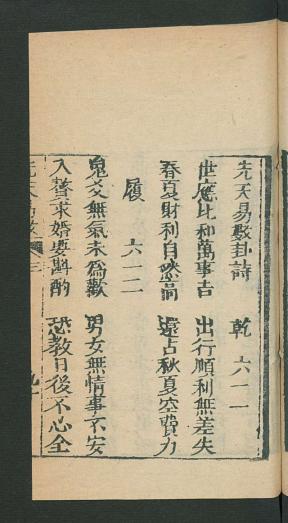 先天易數卦詩 乾 六一一
世應比和萬事吉 出行順利無差失
春夏財利自然高 還占秋夏空費力
履 六一二
鬼爻無氣未為歡 男女無情事不安
入贅求婚要斟酌 恐教日後不心全
先天易數